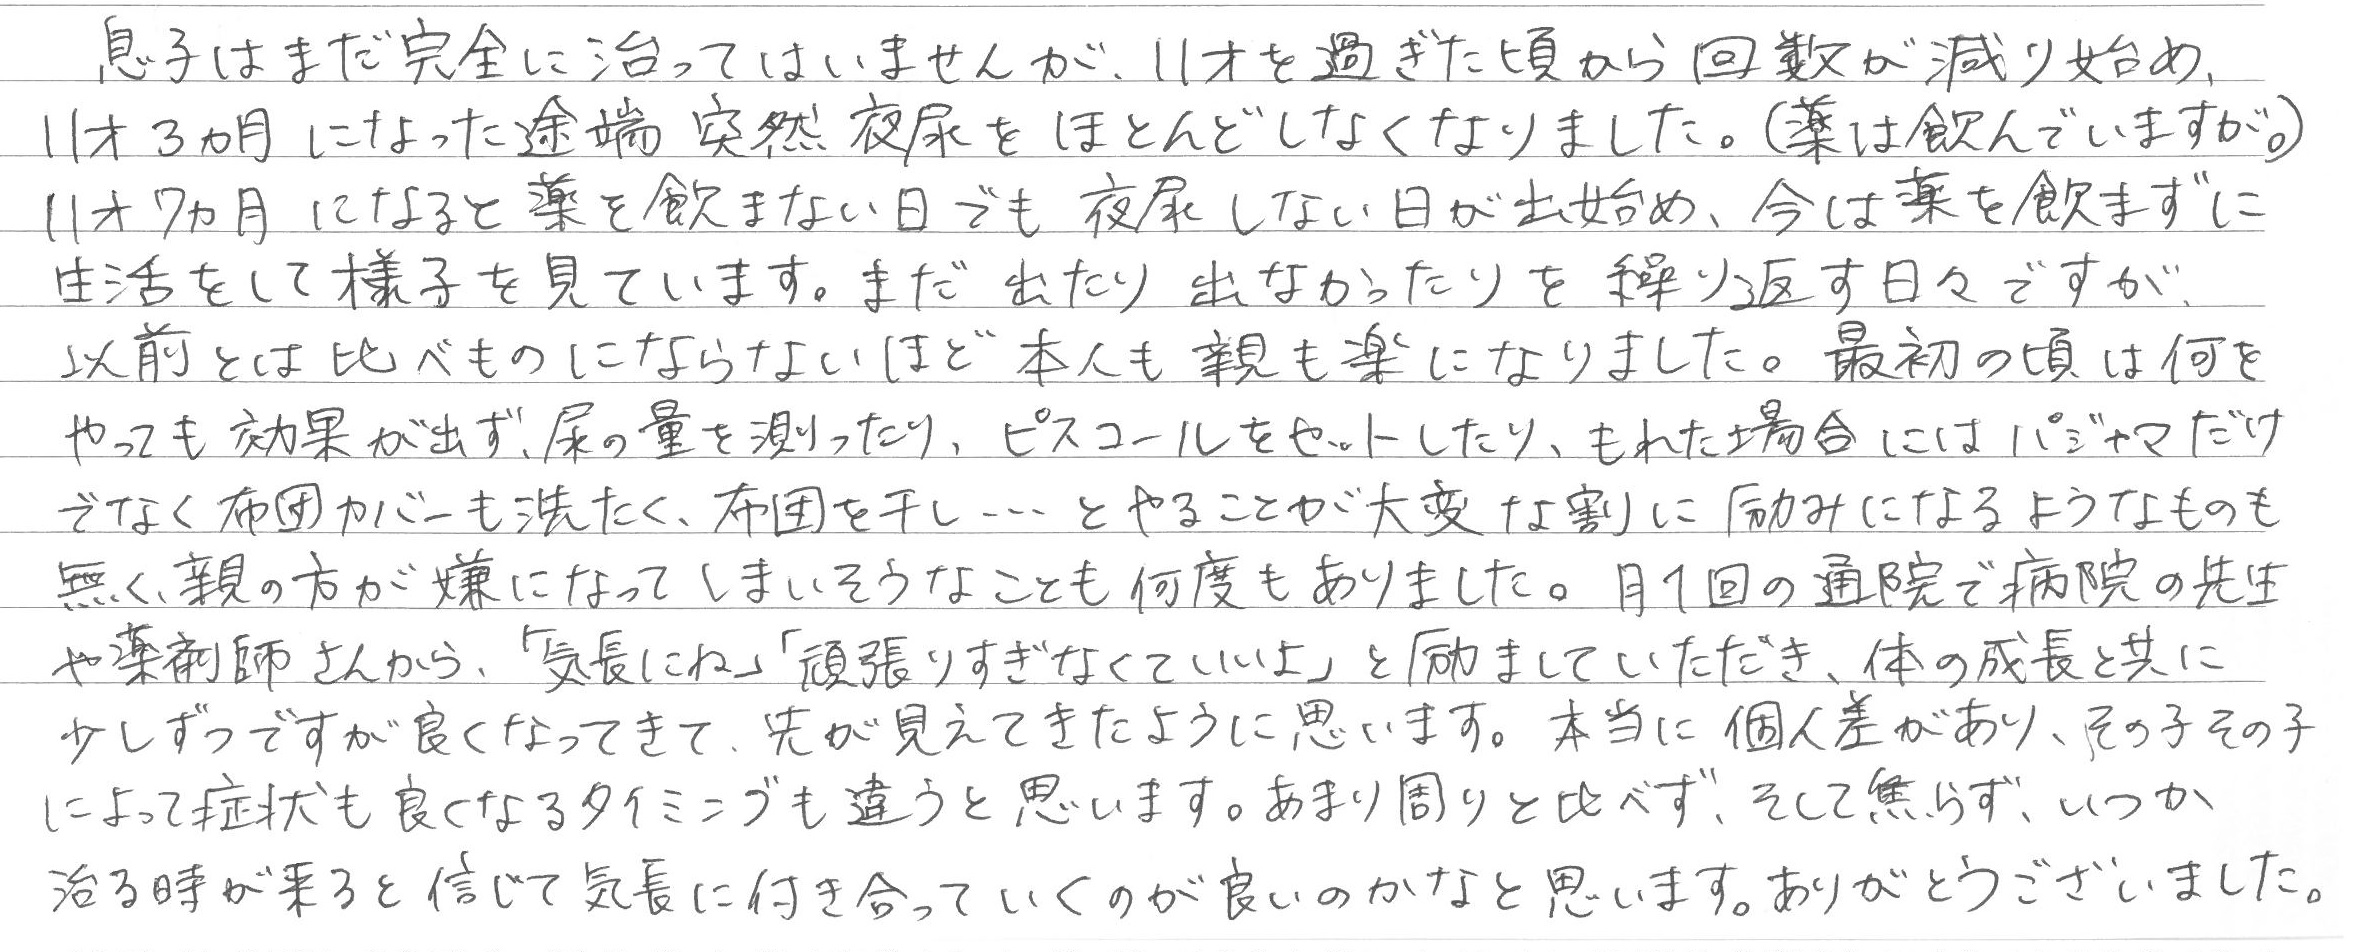 息子はまだ完全に治ってはいませんが、11才を過ぎた頃から回数が減り始め、
11才3ヵ月になった途端突然夜尿をほとんどしなくなりました。(薬は飲んでいますが。)
11才7ヵ月になると薬を飲まない日でも夜尿しない日が出始め、今は薬を飲まずに
生活をして様子を見ています。まだ出たり出なかったりを繰り返す日々ですが、
以前とは比べものにならないほど本人も親も楽になりました。最初の頃は何を
やっても効果が出ず、尿の量を測ったり、ピスコールをセットしたり、もれた場合にはパジャマだけ
でなく布団カバーも洗たく、布団を干し…とやることが大変な割に励みになるようなものも
無く、親の方が嫌になってしまいそうなことも何度もありました。月1回の通院で病院の先生
や薬剤師さんから、「気長にね」「頑張りすぎなくていいよ」と励ましていただき、体の成長と共に
少しずつですが良くなってきて、先が見えてきたように思います。本当に個人差があり、その子その子
によって症状も良くなるタイミングも違うと思います。あまり周りと比べず、そして焦らず、いつか
治る時が来ると信じて気長に付き合っていくのが良いのかなと思います。ありがとうございました。